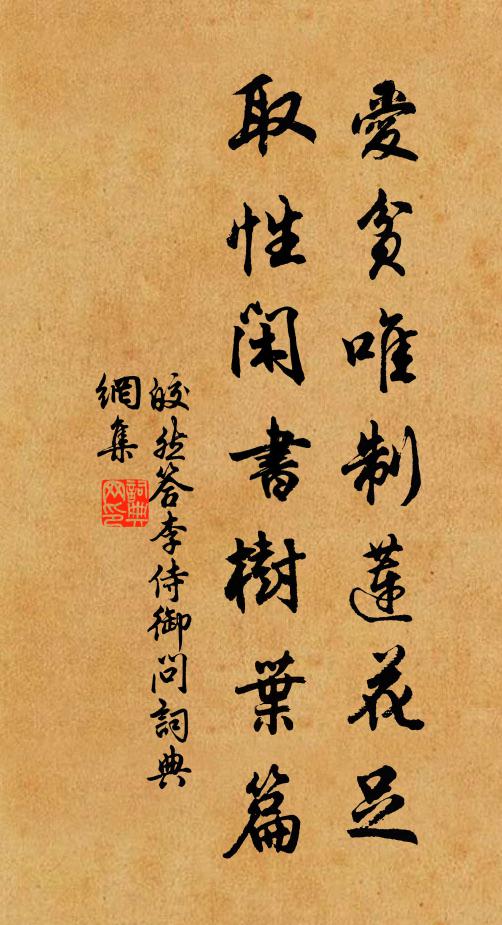 愛貧唯制蓮花足
取性閑書樹葉篇
皎然答李侍御問詞典
網集
詞典
网印